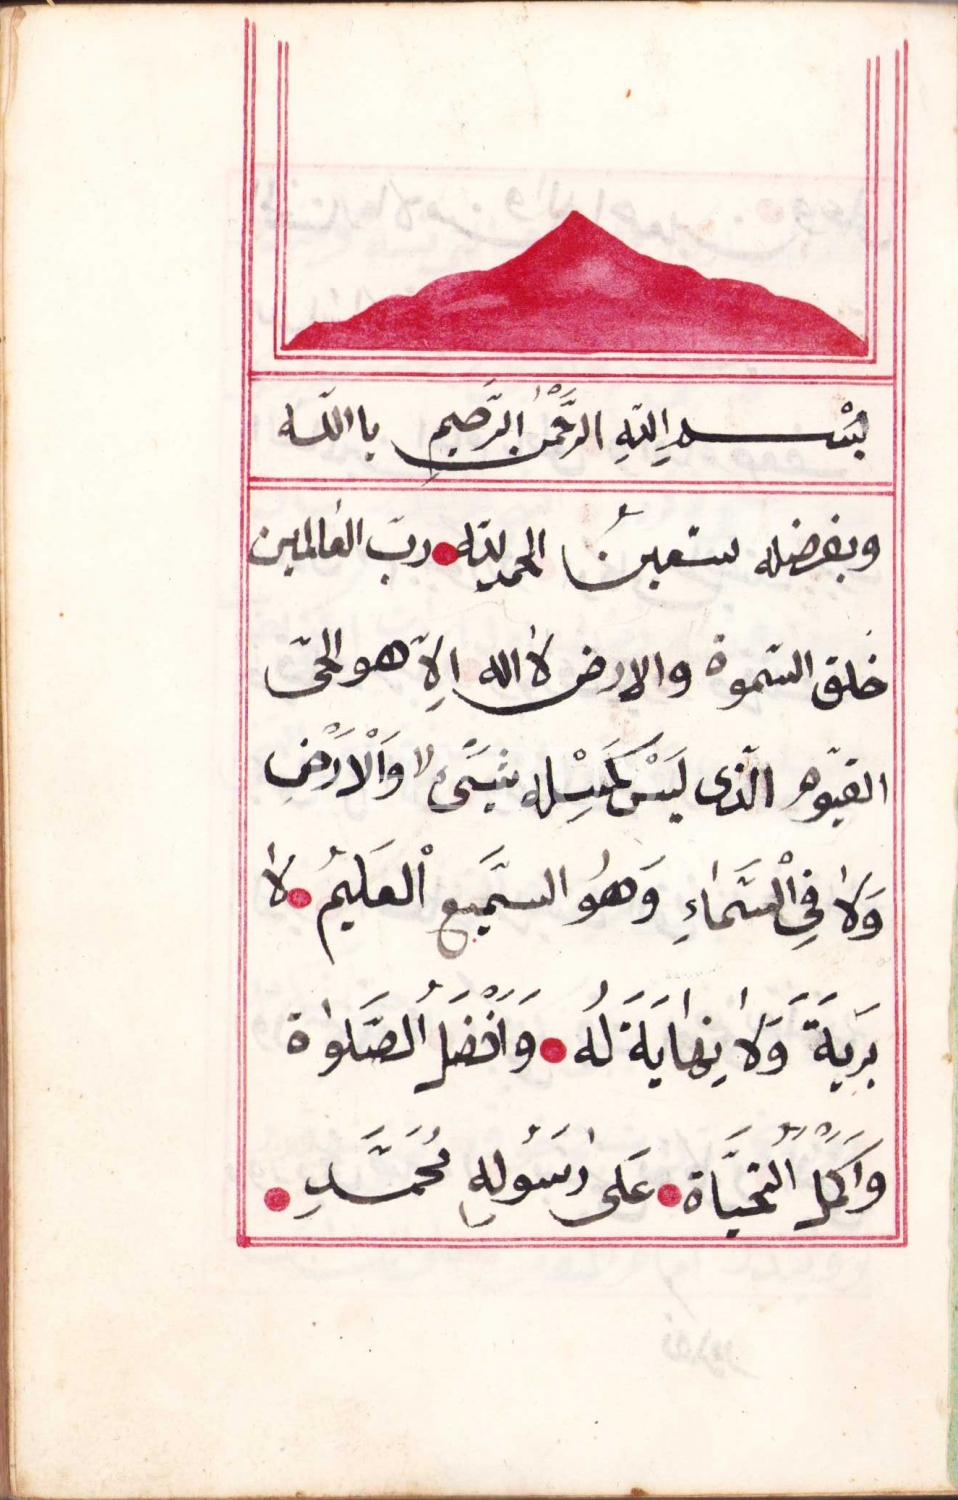 بِسْــمِ اللّٰهِ الرَّحْمٰنِ الرَّحِيمِ باالله
وبفرضله ستعين الحمد لله رب العالمين
خلق السّموة والارض لا اله الّا هو الحىّ
القيّوم الّذى لَيْسَ كَمِسْلِهِ شَيْىءٌ لا وَالْاَرْضِ
وَلَا فِى الْسَّمَاءِ وَهُوَ السَّمِيع الْعَلِيمُ لا
بَرِيَةَ وَلَا نِهَايَةَ لَهُ وَاَفْضَلُ الصَّلَواة
وَاَكْمَلُ التَّحِيَّاة عَلَى رَسُولِهِ مُحَمَّدٍ